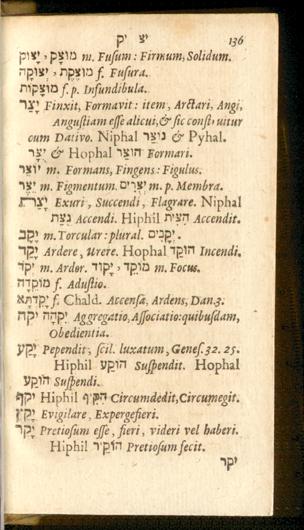 יצ יק 136
מוּצָק, יָצוּק m. Fusum: Firmum, Solidum.
מוּצֶקֶת, יְצוּקָה f. Fusura.
מוּצָקוֹת f. p. Infundibula.
יָצַר Finxit, Formavit: item, Arctari, Angi,
Angustiam esse alicui, & sic constituitur
cum Dativo. Niphal נוֹצַר & Pyhal.
יֻצַּר & Hophal הוּצַר Formari.
יוֹצֵר m. Formans, Fingens: Figulus.
יֵצֶר m. Figmentum. יְצֻרִים m. p. Membra.
יָצַת Exuri, Succendi, Flagrare. Niphal
נִצַּת Accendi. Hiphil הִצִּית Accendit.
יֶקֶב m. Torcular: plural. יְקָבִים.
יָקַד Ardere, Urere. Hophal הוּקַד Incendi.
יְקֹד m. Ardor. מוֹקֵד, יָקוּד m. Focus.
מוֹקְדָה f. Adustio.
יָקֵדְתָּא f. Chald. Accensa, Ardens, Dan. 3.
יִקְּהָה יקה Aggregatio, Associatio: quibusdam,
Obedientia.
יָקַע Pependit, scil. luxatum, Genes. 32. 25.
Hiphil הוֹקִעַ Suspendit. Hophal
הוּקַע Suspendi.
יקף Hiphil הִקִּיף Circumdedit, Circumegit.
יָקַץ Evigilare, Expergefieri.
יָקַר Pretiosum esse, fieri, videri vel haberi.
Hiphil הוֹקִיר Pretiosum fecit.
יקר